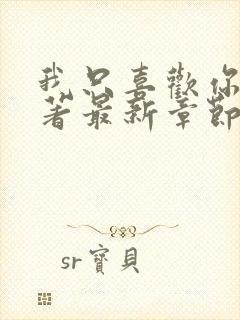 我只喜歡你
著最新章節
sr寶貝